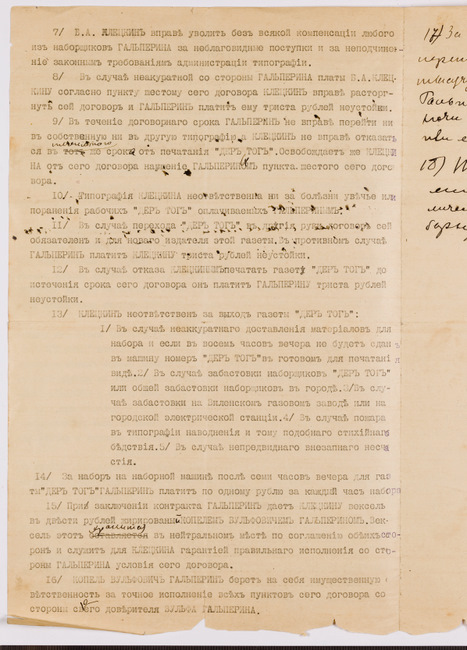 7/ Б.А. КЛЕЦКИНЪ вправѣ уволить безъ всякой компенсаціи любого
изъ наборщиковъ ГАЛЬПЕРИНА за неблаговидные поступки и за неподчине-
ніе законнымъ требованіямъ администраціи типографіи.
8/ Въ случаѣ неакуратной со стороны ГАЛЬПЕРИНА платы Б.А.КЛЕЦ-
КИНУ согласно пункту шестому сего договора КЛЕЦКИНЪ вправѣ расторг-
нуть сей договоръ и ГАЛЬПЕРИНЪ платитъ ему триста рублей неустойки.
9/ Въ теченіе договорнаго срока ГАЛЬПЕРИНЪ не вправѣ перейти ни
въ собственную ни въ другую типографію а КЛЕЦКИНЪ не вправѣ отказать
ся въ тотъ же срокъ отъ печатанія "ДЕРЪ ТОГЪ".Освобождаетъ же КЛЕЦКИ
НА отъ сего договора нарушеніе ГАЛЬПЕРИНЫМЪ пункта шестого сего дого
вора.
10/ Типографія КЛЕЦКИНА неотвѣтственна ни за болѣзни увѣчье или
пораненія рабочихъ "ДЕРЪ ТОГЪ" оплачиваемыхъ ГАЛЬПЕРИНЫМЪ.
11/ Въ случаѣ перехода "ДЕРЪ ТОГЪ" въ другія руки договоръ сей
обязателенъ и для новаго издателя этой газеты.Въ противномъ случаѣ
ГАЛЬПЕРИНЪ платитъ КЛЕЦКИНУ триста рублей неустойки.
12/ Въ случаѣ отказа КЛЕЦКИНЫМЪ печатать газету "ДЕРЪ ТОГЪ" до
истеченія срока сего договора онъ платитъ ГАЛЬПЕРИНУ триста рублей
неустойки.
13/ КЛЕЦКИНЪ неотвѣтственъ за выходъ газеты "ДЕРЪ ТОГЪ":
1/ Въ случаѣ неаккуратнаго доставленія матеріаловъ для
набора и если въ восемь часовъ вечера не будетъ сданъ
въ машину номеръ "ДЕРЪ ТОГЪ"въ готовомъ для печатанія
видѣ.2/ Въ случаѣ забастовки наборщиковъ "ДЕРЪ ТОГЪ"
или общей забастовки наборщиковъ въ городѣ.3/Въ слу-
чаѣ забастовки на Виленскомъ газовомъ заводѣ или на
городской электрической станціи.4/ Въ случаѣ пожара
въ типографіи наводненія и тому подобнаго стихійнаго
бѣдствія.5/ Въ случаѣ непредвидѣннаго внезапнаго несча
стія.
14/ За наборъ на наборной машинѣ послѣ семи часовъ вечера для газе
ты"ДЕРЪ ТОГЪ"ГАЛЬПЕРИНЪ платитъ по одному рублю за каждый часъ набора
15/ При заключеніи контракта ГАЛЬПЕРИНЪ даетъ КЛЕЦКИНУ вексель
въ двѣсти рублей жирированный КОПЕЛЕМЪ ВУЛЬФОВИЧЕМЪ ГАЛЬПЕРИНОМЪ.Век-
хранится
сель этотъ оставляется въ нейтральномъ мѣстѣ по соглашенію обѣихъ сто-
ронъ и служитъ для КЛЕЦКИНА гарантіей правильнаго исполненія со сто-
роны ГАЛЬПЕРИНА условія сего договора.
16/ КОПЕЛЬ ВУЛЬФОВИЧЪ ГАЛЬПЕРИНЪ беретъ на себя имущественную
вѣтственность за точное исполненіе всѣхъ пунктовъ сего договора со
стороны своего довѣрителя ВУЛЬФА ГАЛЬПЕРИНА.
17) За
18)